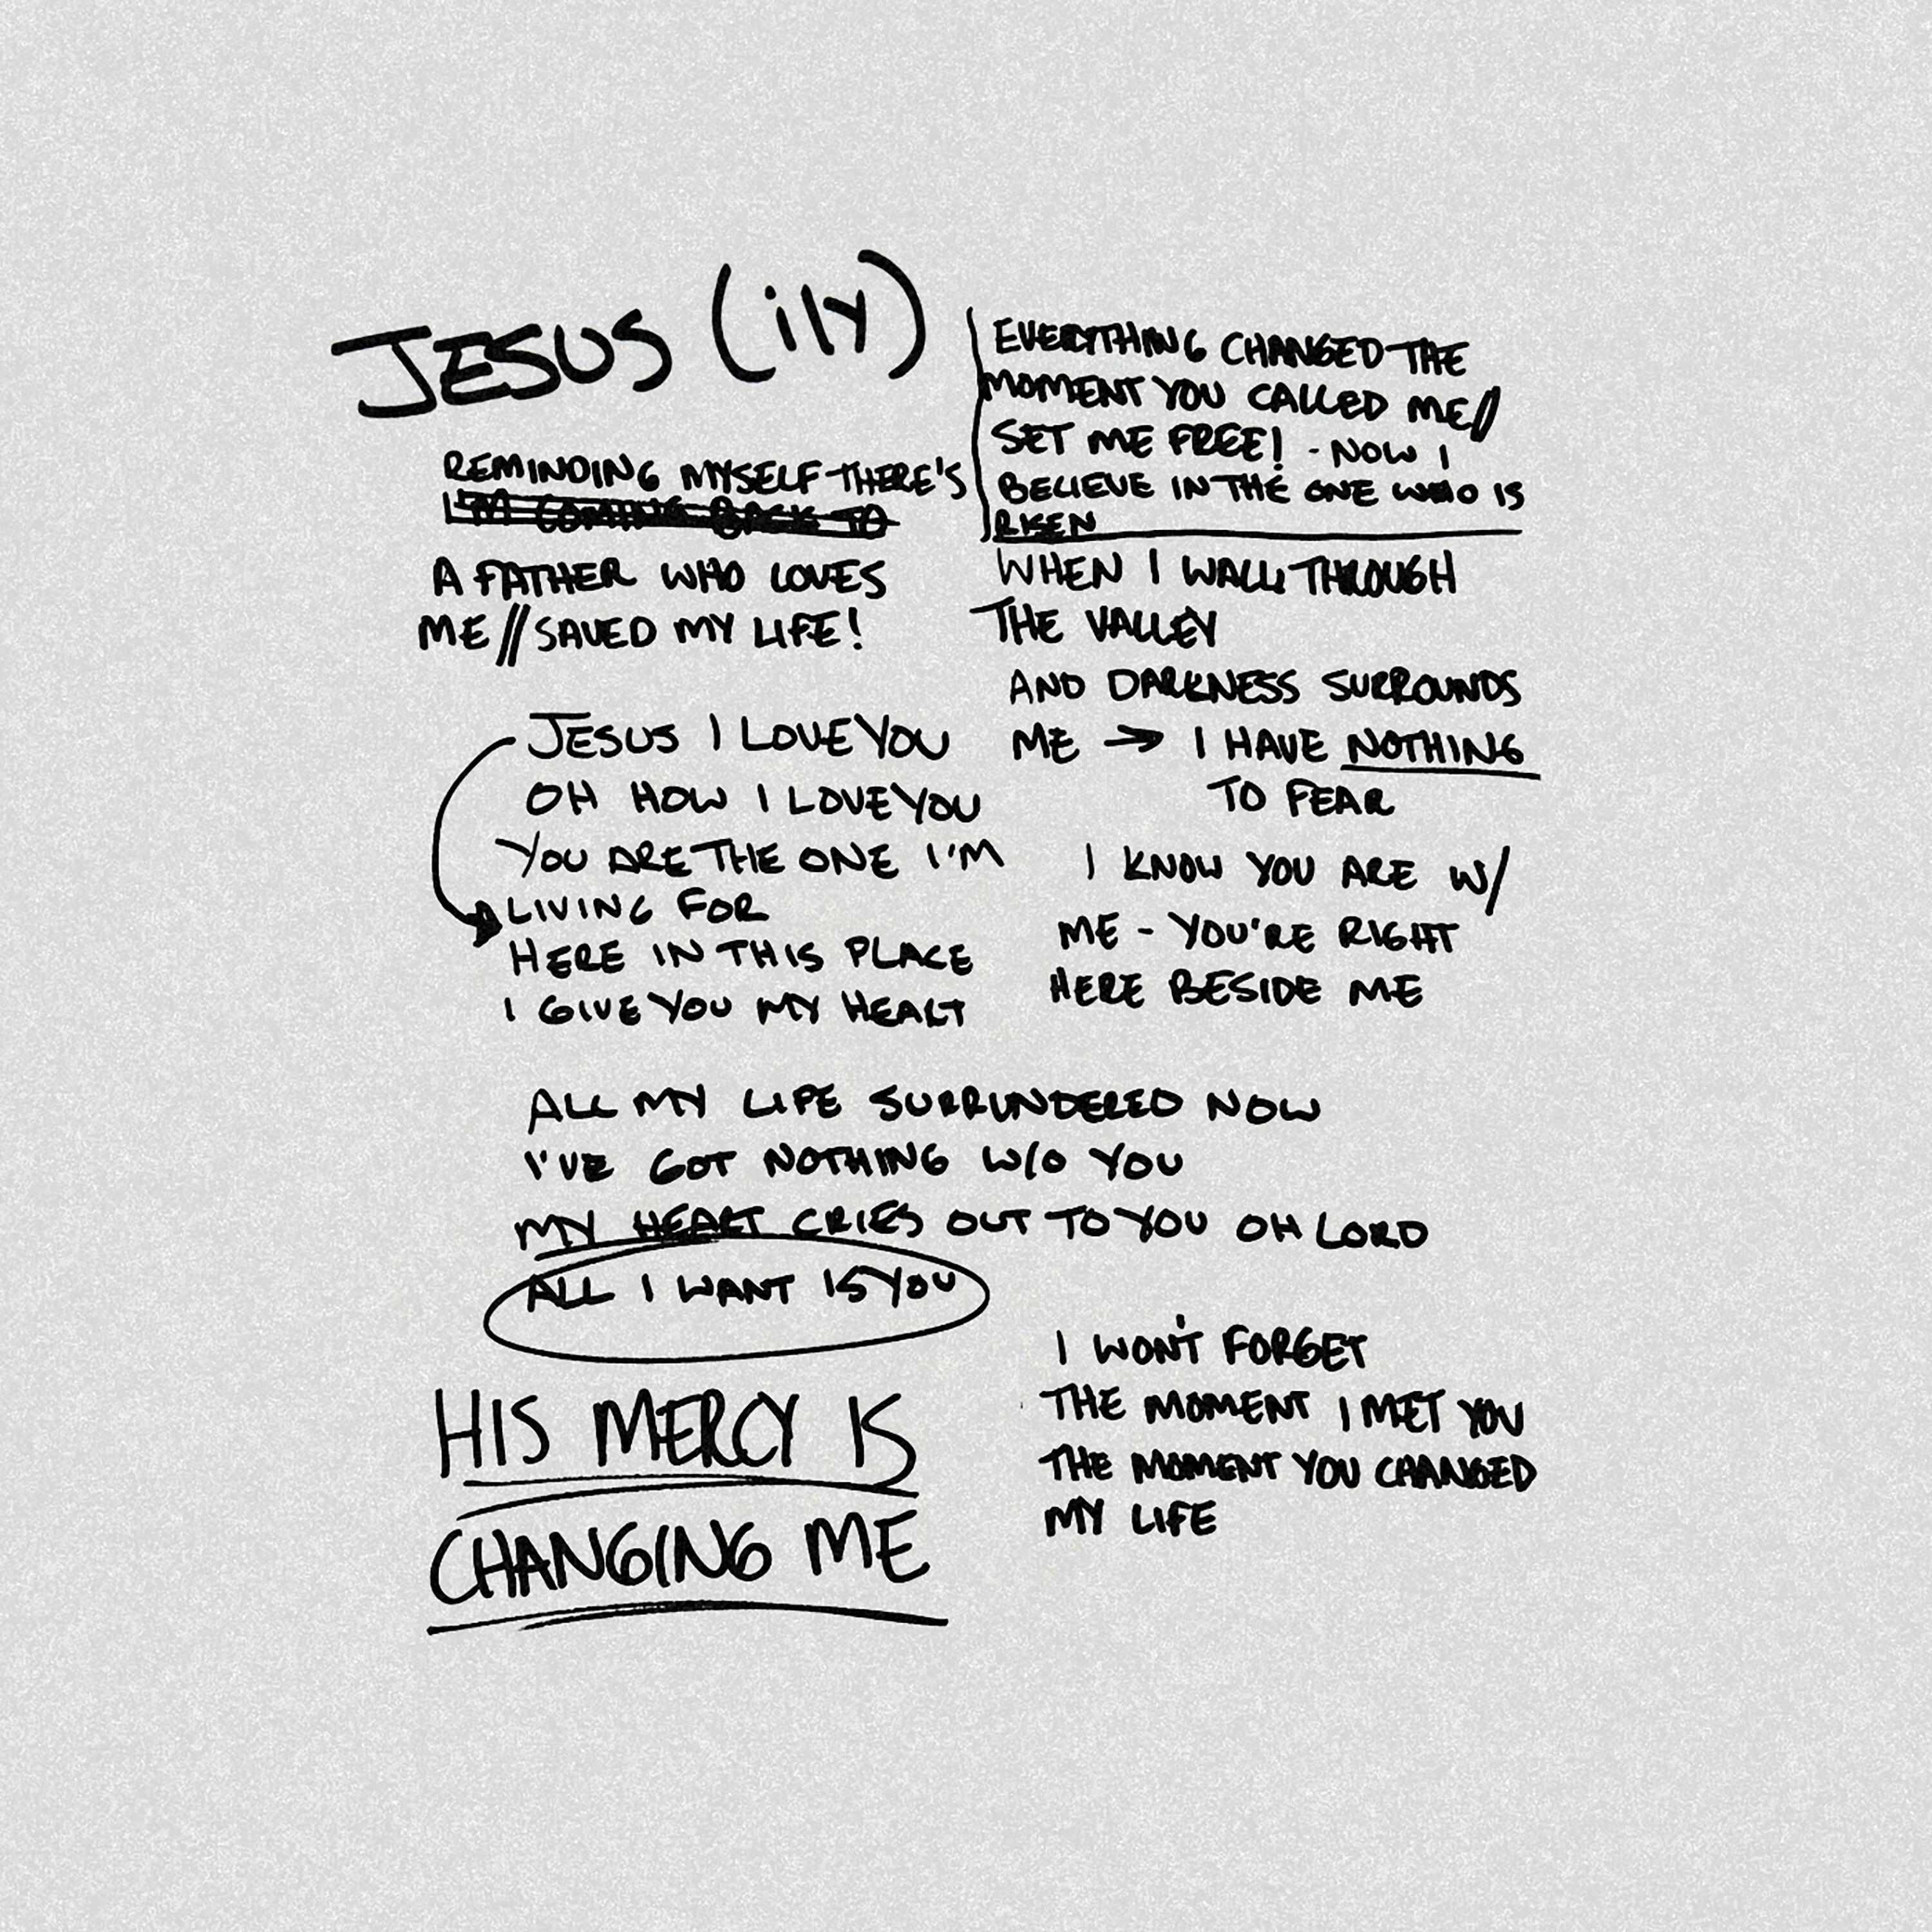 JESUS (ily)
REMINDING MYSELF THERE'S
I'M COMING BACK TO
A FATHER WHO LOVES
ME//SAVED MY LIFE!
JESUS I LOVE YOU
OH HOW I LOVE YOU
YOU ARE THE ONE I'M
LIVING FOR
HERE IN THIS PLACE
I GIVE YOU MY HEART
EVERYTHING CHANGED THE
MOMENT YOU CALLED ME//
SET ME FREE! - NOW I
BELIEVE IN THE ONE WHO IS
RISEN
WHEN I WALK THROUGH
THE VALLEY
AND DARKNESS SURROUNDS
ME → I HAVE NOTHING
TO FEAR
I KNOW YOU ARE W/
ME - YOU'RE RIGHT
HERE BESIDE ME
ALL MY LIFE SURRUNDERED NOW
I'VE GOT NOTHING W/O YOU
MY HEART CRIES OUT TO YOU OH LORD
ALL I WANT IS YOU
HIS MERCY IS
CHANGING ME
I WON'T FORGET
THE MOMENT I MET YOU
THE MOMENT YOU CHANGED
MY LIFE